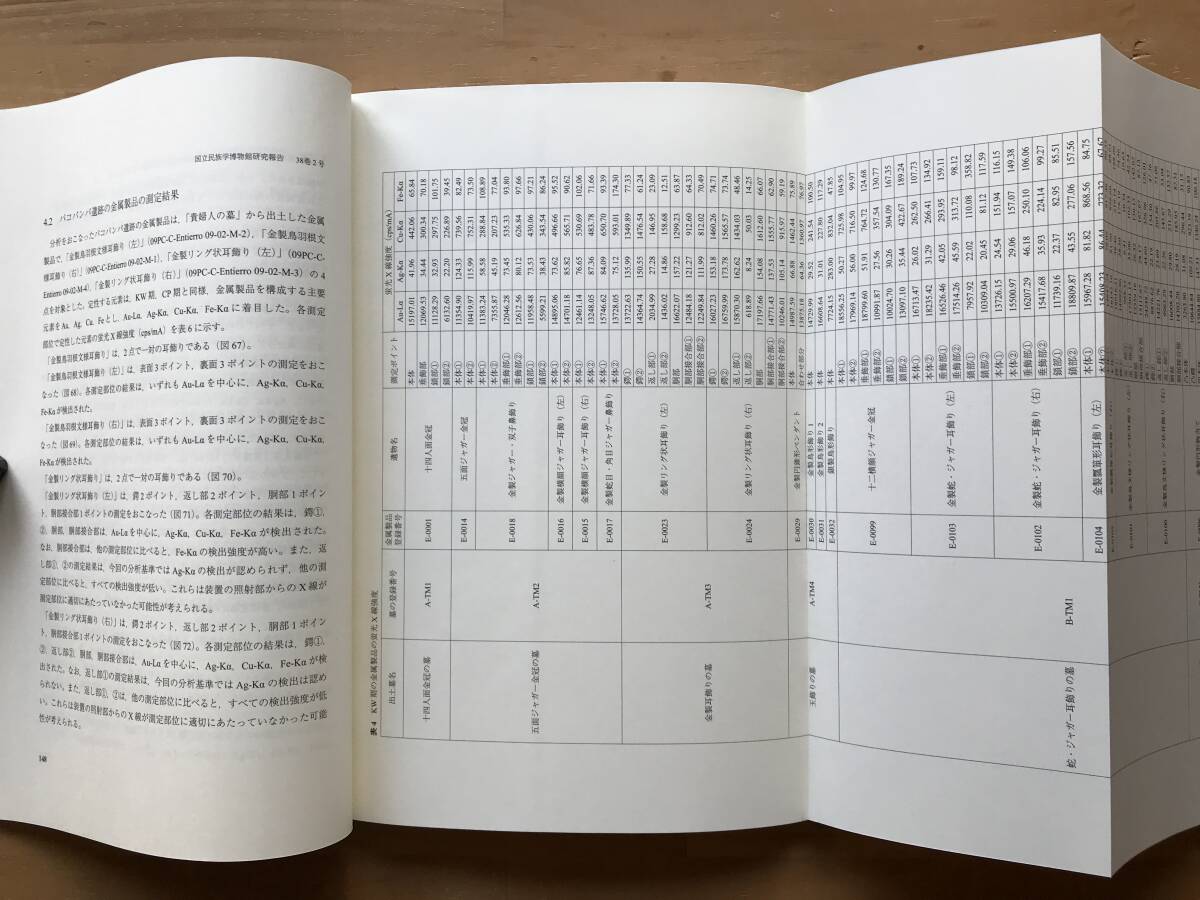 国立民族学博物館研究報告　38巻2号
4.2　パコパンパ遺跡の金属製品の測定結果
分析をおこなったパコパンパ遺跡の金属製品は,「貴婦人の墓」から出土した金属
製品で,「金製鳥羽根文様耳飾り（左）」(09PC-C-Entierro 09-02-M-1),「金製鳥羽根文
様耳飾り（右）」(09PC-C-Entierro 09-02-M-2),「金製リング状耳飾り（左）」(09PC-C-
Entierro 09-02-M-4),「金製リング状耳飾り（右）」(09PC-C-Entierro 09-02-M-3) の4
点を対象とした。定性する元素は, KW期, CP期と同様, 金属製品を構成する主要
元素を Au, Ag, Cu, Fe とし, Au-Lα, Ag-Kα, Cu-Kα, Fe-Kα に着目した。各測定
部位で定性した元素の蛍光X線強度 (cps/mA) を表6に示す。
「金製鳥羽根文様耳飾り」は, 2点で一対の耳飾りである（図67）。
「金製鳥羽根文様耳飾り（左）」は, 表面3ポイント, 裏面3ポイントの測定をおこ
なった（図68）。各測定部位の結果は, いずれも Au-Lα を中心に, Ag-Kα, Cu-Kα,
Fe-Kα が検出された。
「金製鳥羽根文様耳飾り（右）」は, 表面3ポイント, 裏面3ポイントの測定をおこ
なった（図69）。各測定部位の結果は, いずれも Au-Lα を中心に, Ag-Kα, Cu-Kα,
Fe-Kα が検出された。
「金製リング状耳飾り」は, 2点で一対の耳飾りである（図70）。
「金製リング状耳飾り（左）」は, 鍔2ポイント, 返し部2ポイント, 胴部1ポイン
ト, 胴部接合部1ポイントの測定をおこなった（図71）。各測定部位の結果は, 鍔①,
②, 胴部, 胴部接合部は, Au-Lα を中心に, Ag-Kα, Cu-Kα, Fe-Kα が検出された。
なお, 胴部接合部は, 他の測定部位に比べると, Fe-Kα の検出強度が高い。また, 返
し部①, ②の測定結果は, 今回の分析基準では Ag-Kα の検出が認められず, 他の測
定部位に比べると, すべての検出強度が低い。これらは装置の照射部からのX線が
測定部位に適切にあたっていなかった可能性が考えられる。
「金製リング状耳飾り（右）」は, 鍔2ポイント, 返し部2ポイント, 胴部1ポイン
ト, 胴部接合部1ポイントの測定をおこなった（図72）。各測定部位の結果は, 鍔①,
②, 返し部②, 胴部, 胴部接合部は, Au-Lα を中心に, Ag-Kα, Cu-Kα, Fe-Kα が検
出された。なお, 返し部①の測定結果は, 今回の分析基準では Ag-Kα の検出は認め
られない。また, 返し部①, ②は, 他の測定部位に比べると, すべての検出強度が低
い。これらは装置の照射部からのX線が測定部位に適切にあたっていなかった可能
性が考えられる。
148
表4　KW期の金属製品の蛍光X線強度
出土墓名 墓の登録番号 金属製品登録番号 遺物名 測定ポイント 蛍光X線強度 (cps/mA)
Au-Lα Ag-Kα Cu-Kα Fe-Kα
十四人面金冠の墓 A-TM1 E-0001 十四人面金冠 本体 15197.01 41.96 442.06 65.84
垂飾部 12069.53 34.44 300.34 70.18
鎖部① 11128.29 31.93 297.75 101.75
鎖部② 6132.60 22.20 226.89 39.45
五面ジャガー金冠の墓 A-TM2 E-0014 五面ジャガー金冠 本体① 11354.90 124.33 739.56 82.49
本体② 10419.97 115.99 752.31 73.50
E-0018 金製ジャガー・双子鼻飾り 本体① 11383.24 58.58 288.84 108.89
本体② 7355.87 45.19 207.23 77.04
垂飾部① 12046.28 73.45 535.33 93.80
垂飾部② 12612.56 80.12 626.84 97.66
鎖部① 11958.48 73.53 430.06 97.21
鎖部② 5599.21 38.43 343.54 86.24
E-0016 金製横顔ジャガー耳飾り（左） 本体① 14895.06 73.62 496.66 95.52
本体② 14701.18 85.82 565.71 90.62
E-0015 金製横顔ジャガー耳飾り（右） 本体① 12461.14 76.65 530.69 102.06
本体② 13248.05 87.36 483.78 71.66
E-0017 金製蛇目・角目ジャガー鼻飾り 本体① 15746.62 84.09 650.50 93.39
本体② 13728.05 75.12 593.01 174.30
金製耳飾りの墓 A-TM3 E-0023 金製リング状耳飾り（左） 鍔① 13722.63 135.99 1349.89 77.33
鍔② 14364.74 150.55 1476.54 61.24
返し部① 2034.99 27.28 146.95 23.09
返し部② 1436.02 14.86 158.68 12.51
胴部 16622.07 157.22 1299.23 63.87
胴部接合部① 12484.18 121.27 912.60 64.33
胴部接合部② 12249.84 111.13 812.02 70.49
E-0024 金製リング状耳飾り（右） 鍔① 16027.23 153.18 1460.26 74.71
鍔② 16759.99 173.78 1565.57 73.74
返し部① 15870.30 162.62 1434.03 48.46
返し部② 618.89 8.24 50.03 14.25
胴部 17197.66 154.08 1612.60 66.07
胴部接合部① 16771.43 137.53 1555.77 62.90
胴部接合部② 10246.01 105.14 915.97 59.19
E-0029 金製円錐形ペンダント 本体 14987.59 66.88 1462.44 75.89
合わせ部分 13875.18 64.36 1360.97 76.97
玉飾りの墓 A-TM4 E-0030 金製鳥形飾り1 本体 14729.99 29.52 241.54 106.50
E-0031 金製鳥形飾り2 本体 16608.64 31.01 227.80 117.29
E-0032 本体 7724.15 283.00 832.04 41.85
蛇・ジャガー耳飾りの墓 B-TM1 E-0099 十二横顔ジャガー金冠 本体① 18556.25 50.27 725.98 104.95
本体② 17969.14 56.00 716.50 99.97
垂飾部① 18799.60 51.91 764.72 124.68
垂飾部② 10991.87 27.56 357.54 130.77
鎖部① 10024.70 30.26 304.09 167.35
鎖部② 13097.10 35.44 422.67 189.24
E-0103 金製蛇・ジャガー耳飾り（左） 本体① 16713.47 26.02 262.50 107.73
本体② 18235.42 31.29 266.41 134.92
垂飾部① 16526.46 42.05 293.95 111.09
垂飾部② 17514.26 45.59 313.72 98.12
鎖部① 7957.92 22.02 110.08 358.82
鎖部② 10309.04 20.45 81.12 117.59
E-0102 金製蛇・ジャガー耳飾り（右） 本体① 13726.15 24.54 151.94 116.15
本体② 15500.97 29.06 157.07 149.38
垂飾部① 16207.29 46.18 250.10 106.06
垂飾部② 15417.68 35.93 224.14 99.27
鎖部① 11739.16 22.37 82.95 85.51
鎖部② 18809.87 43.55 277.06 157.56
E-0104 金製瓢箪形耳飾り（左） 本体① 15967.28 81.82 868.56 84.75